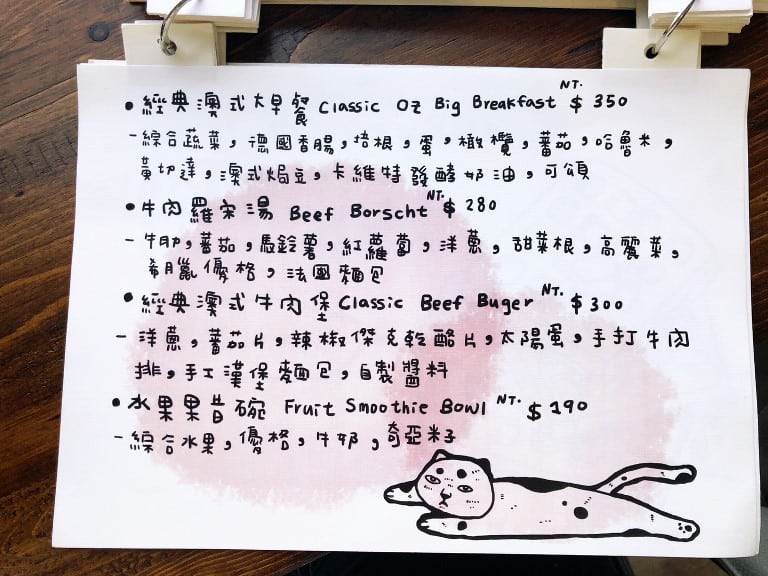 • 經典澳式大早餐 Classic Oz Big Breakfast NT. $ 350
- 綜合蔬菜, 德國香腸, 培根, 蛋, 橄欖, 蕃茄, 哈魯米,
黃切達, 澳式焗豆, 卡維特發酵奶油, 可頌
• 牛肉羅宋湯 Beef Borscht NT. $ 280
- 牛肋, 蕃茄, 馬鈴薯, 紅蘿蔔, 洋蔥, 甜菜根, 高麗菜,
希臘優格, 法國麵包
• 經典澳式牛肉堡 Classic Beef Buger NT. $ 300
- 洋蔥, 蕃茄片, 辣椒傑克乾酪片, 太陽蛋, 手打牛肉
排, 手工漢堡麵包, 自製醬料
• 水果果昔碗 Fruit Smoothie Bowl NT. $ 190
- 綜合水果, 優格, 牛奶, 奇亞籽